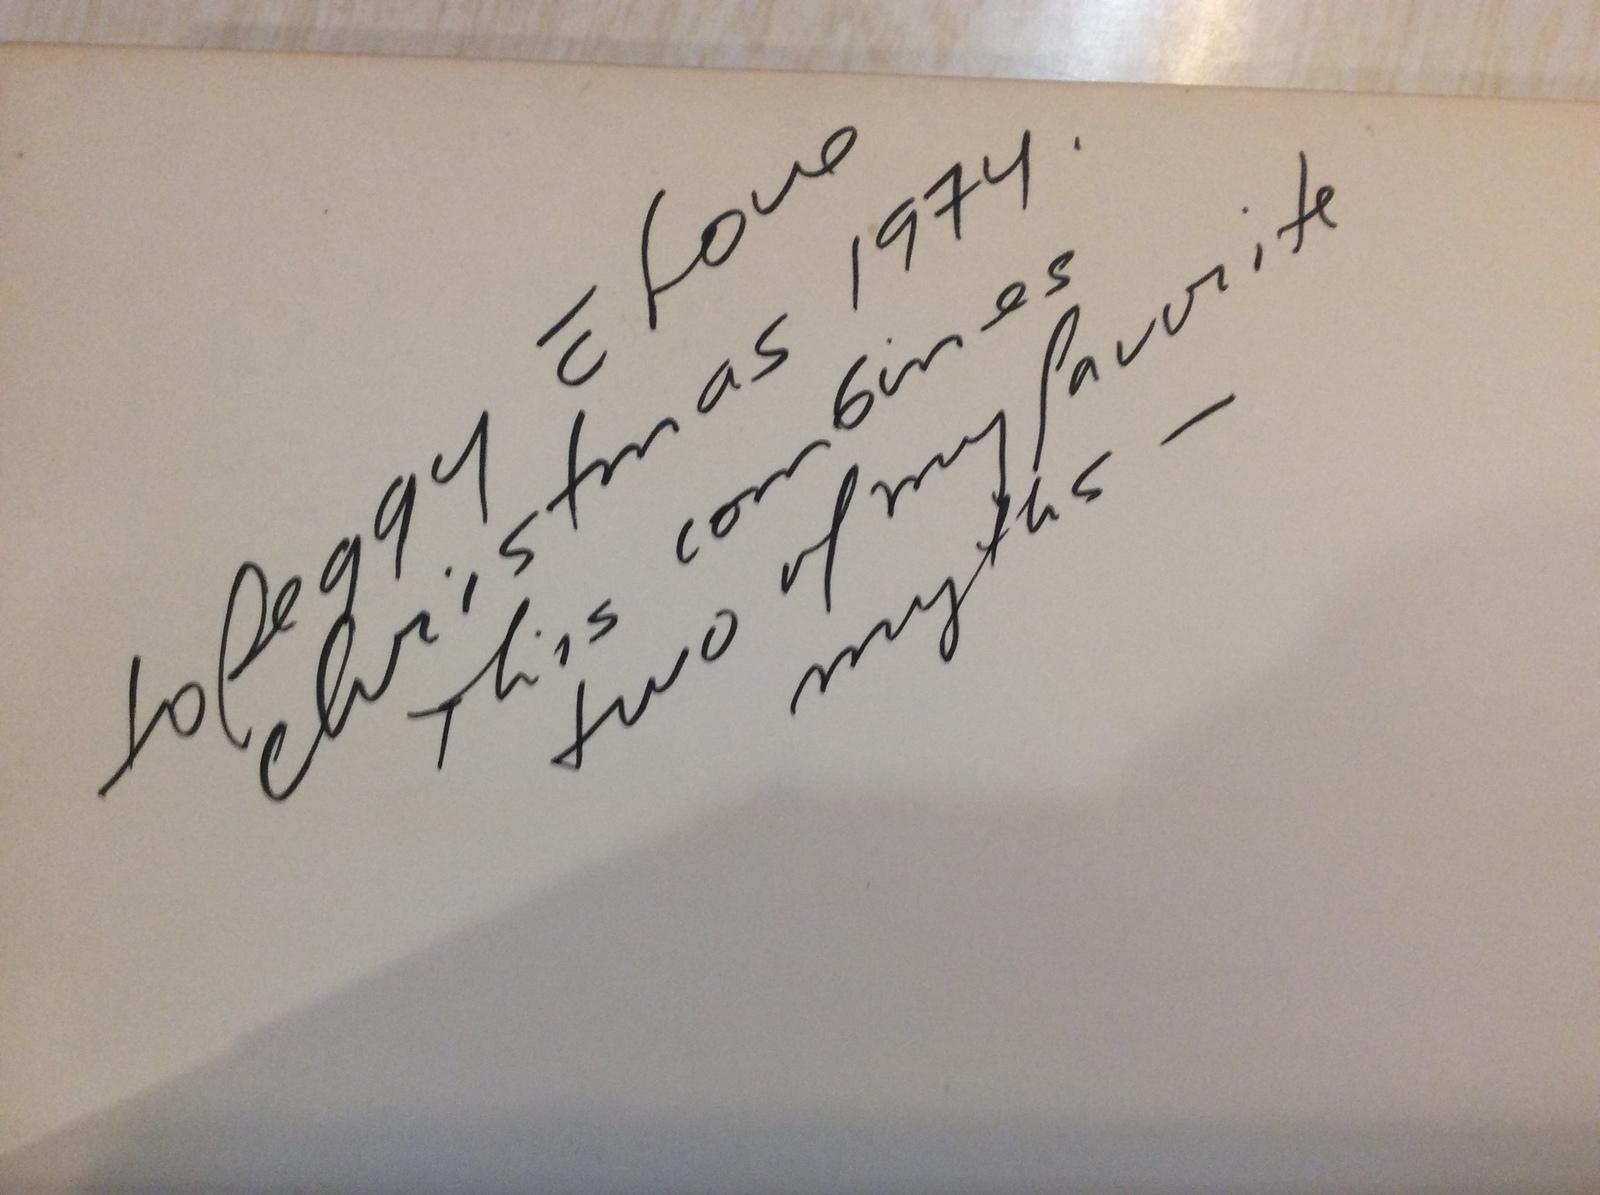 to Peggy c̄ Love
christmas 1974.
This combines
two of my favorite
myths —